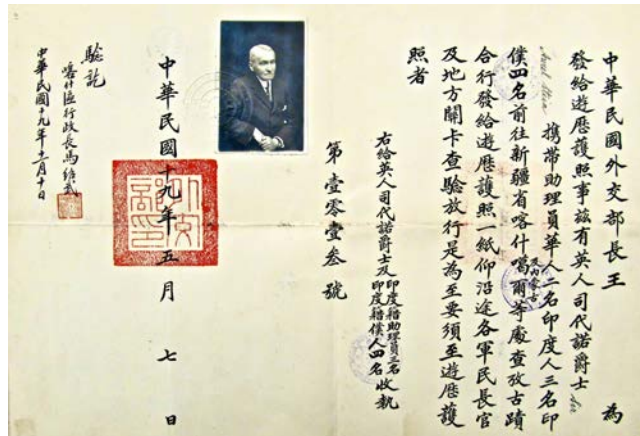 中華民國外交部長王 為
發給遊歷護照事茲有英人司代諾爵士 Sir
Aurel Stein 携帶助理員華人二名印度人三名印
僕四名前往新疆省喀什噶爾等處查攷古蹟
及內蒙古
合行發給遊歷護照一紙仰沿途各軍民長官
及地方關卡查驗放行是為至要須至遊歷護
照者
右給英人司代諾爵士及印度籍助理員三名印度籍僕人四名收執
第壹零壹叁號
中華民國十九年五月七日
外交部印
驗訖
喀什區行政長馬紹武
中華民國十九年十一月十日